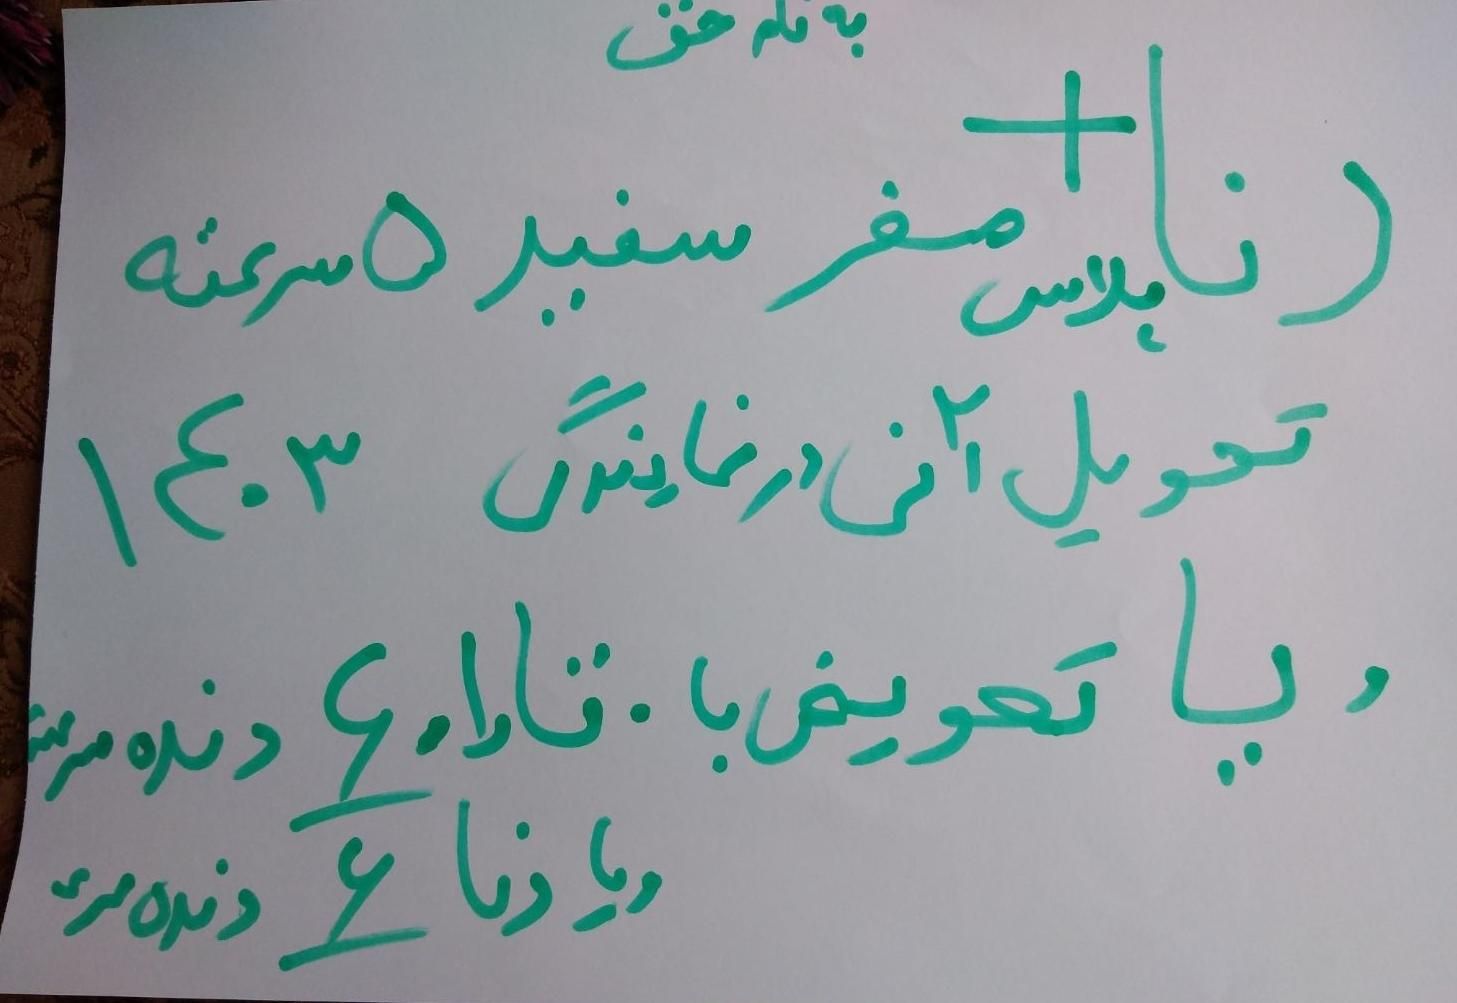 به نام حق
رنا + پلاس صفر سفید ۵ سرعته
تحویل آنی در نمایندگی ۱۴۰۳
و یا تعویض با . تارا. ۶ دنده سرعته
و یا دنا ۶ دنده سرعته